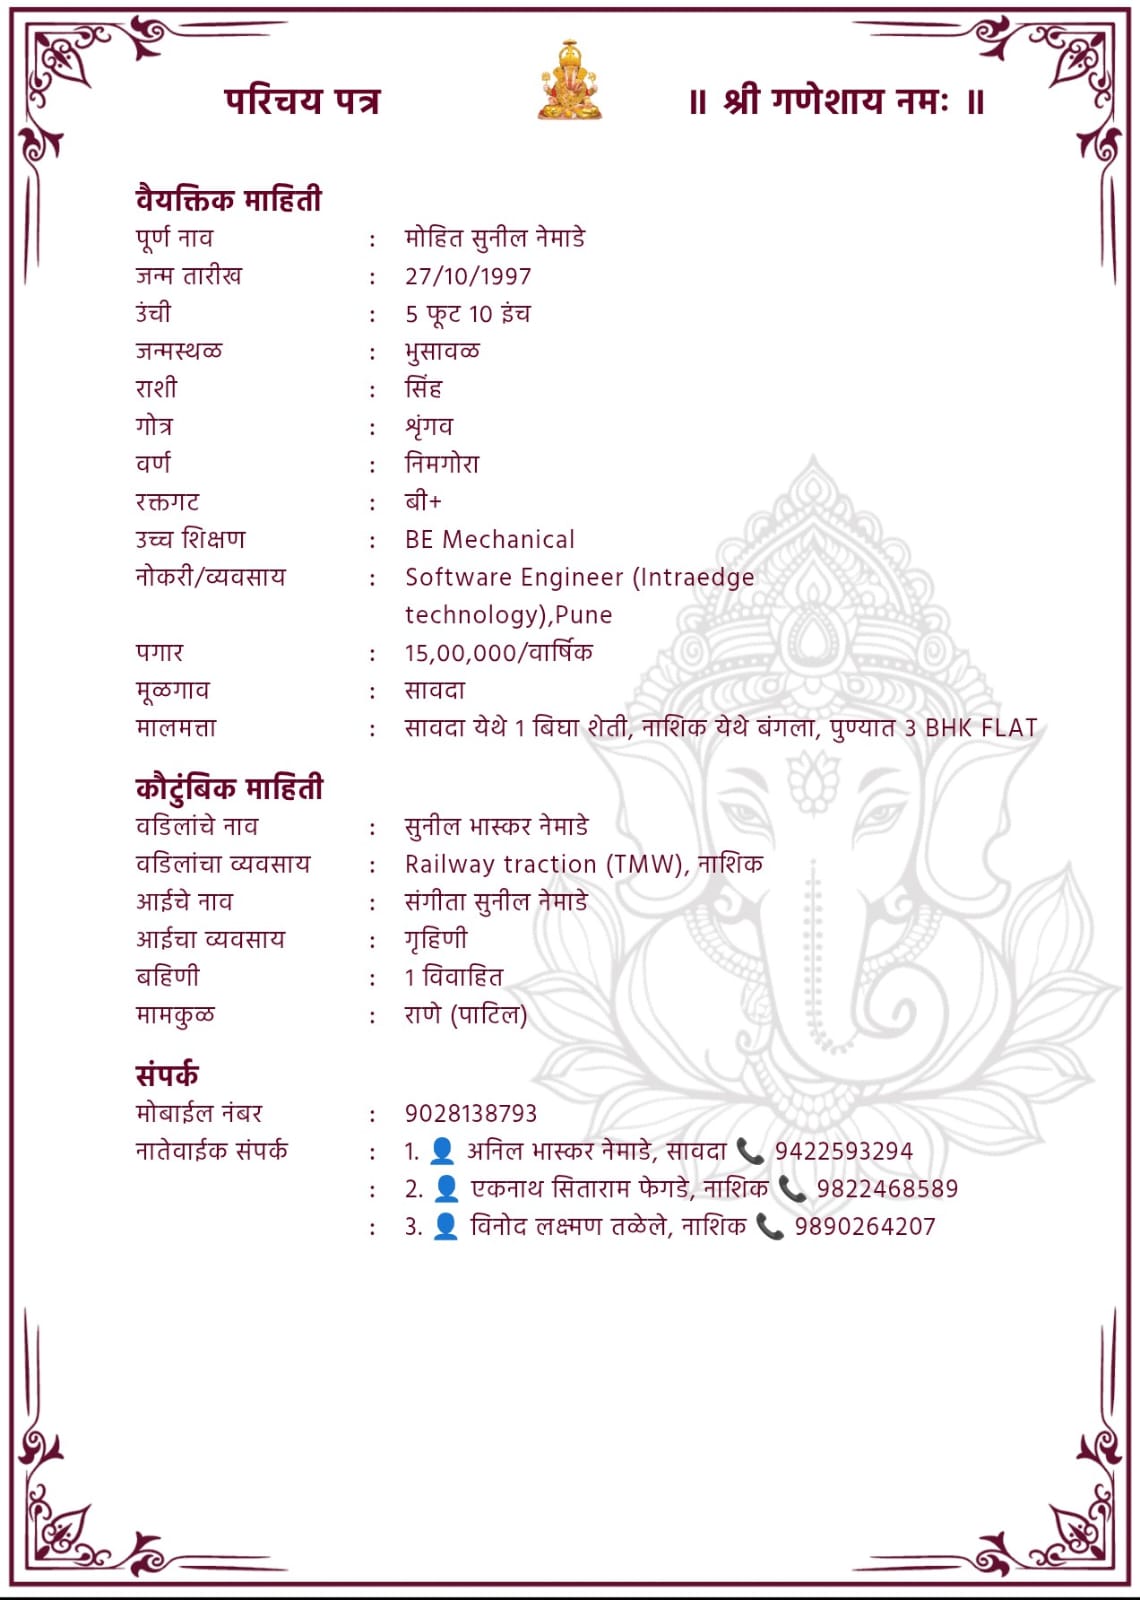 परिचय पत्र
॥ श्री गणेशाय नमः ॥
वैयक्तिक माहिती
पूर्ण नाव : मोहित सुनील नेमाडे
जन्म तारीख : 27/10/1997
उंची : 5 फूट 10 इंच
जन्मस्थळ : भुसावळ
राशी : सिंह
गोत्र : श्रृंगव
वर्ण : निमगोरा
रक्तगट : बी+
उच्च शिक्षण : BE Mechanical
नोकरी/व्यवसाय : Software Engineer (Intraedge
technology),Pune
पगार : 15,00,000/वार्षिक
मूळगाव : सावदा
मालमत्ता : सावदा येथे 1 बिघा शेती, नाशिक येथे बंगला, पुण्यात 3 BHK FLAT
कौटुंबिक माहिती
वडिलांचे नाव : सुनील भास्कर नेमाडे
वडिलांचा व्यवसाय : Railway traction (TMW), नाशिक
आईचे नाव : संगीता सुनील नेमाडे
आईचा व्यवसाय : गृहिणी
बहिणी : 1 विवाहित
मामकुळ : राणे (पाटिल)
संपर्क
मोबाईल नंबर : 9028138793
नातेवाईक संपर्क : 1. 👤 अनिल भास्कर नेमाडे, सावदा 📞 9422593294
: 2. 👤 एकनाथ सिताराम फेगडे, नाशिक 📞 9822468589
: 3. 👤 विनोद लक्ष्मण तळेले, नाशिक 📞 9890264207